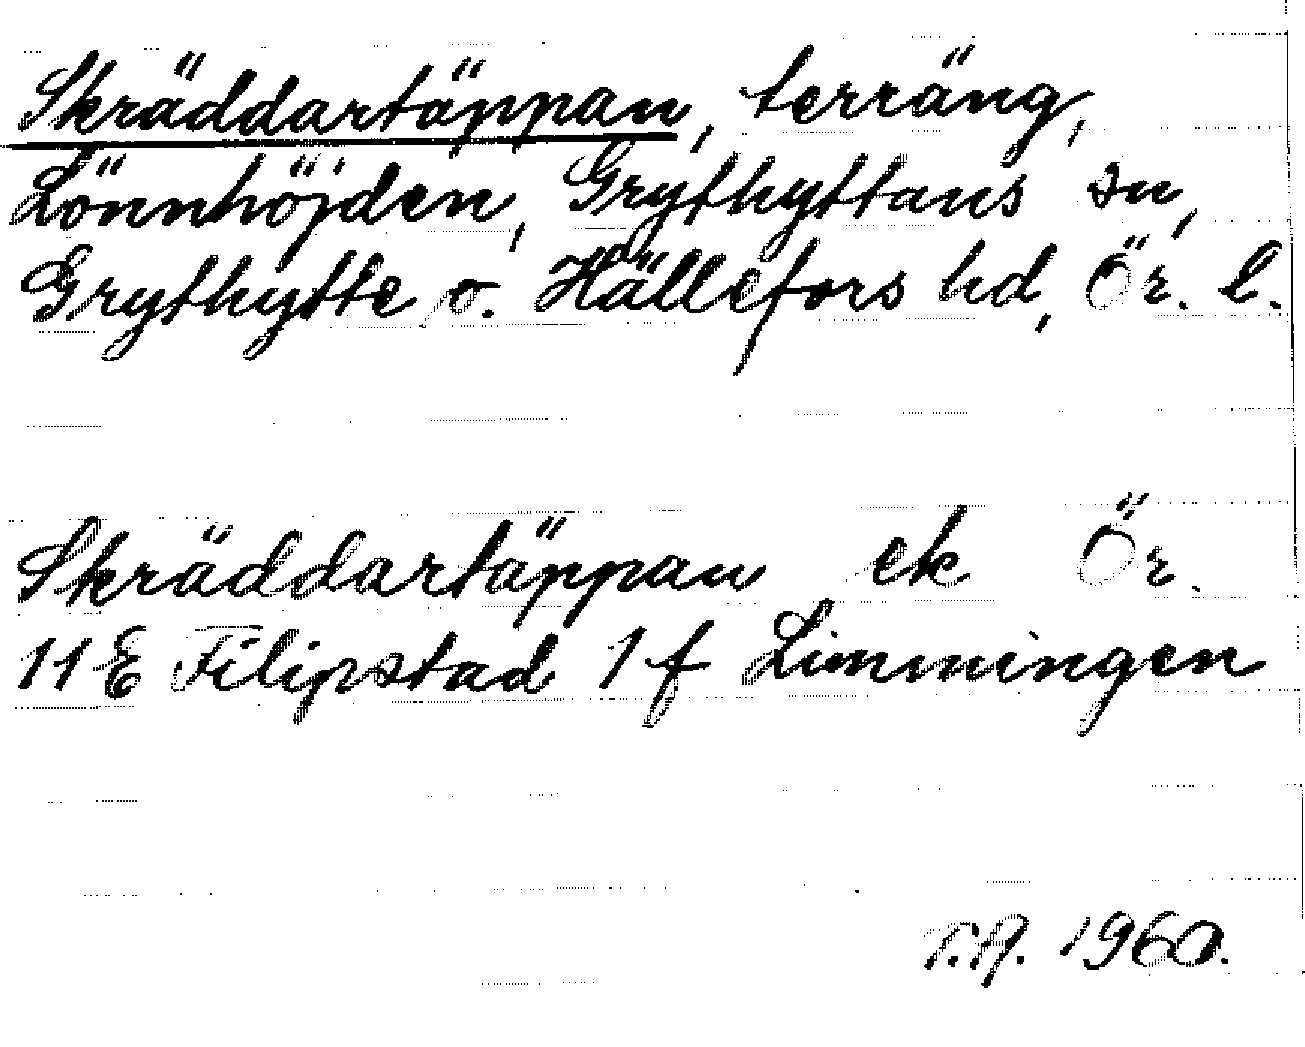 Skräddartäppan, terräng,
Lönnhöjden, Grythyttans sn,
Grythytte o. Hällefors hd, Ör. l.
Skräddartäppan ek Ör.
11E Filipstad 1f Limmingen
T.A. 1960.